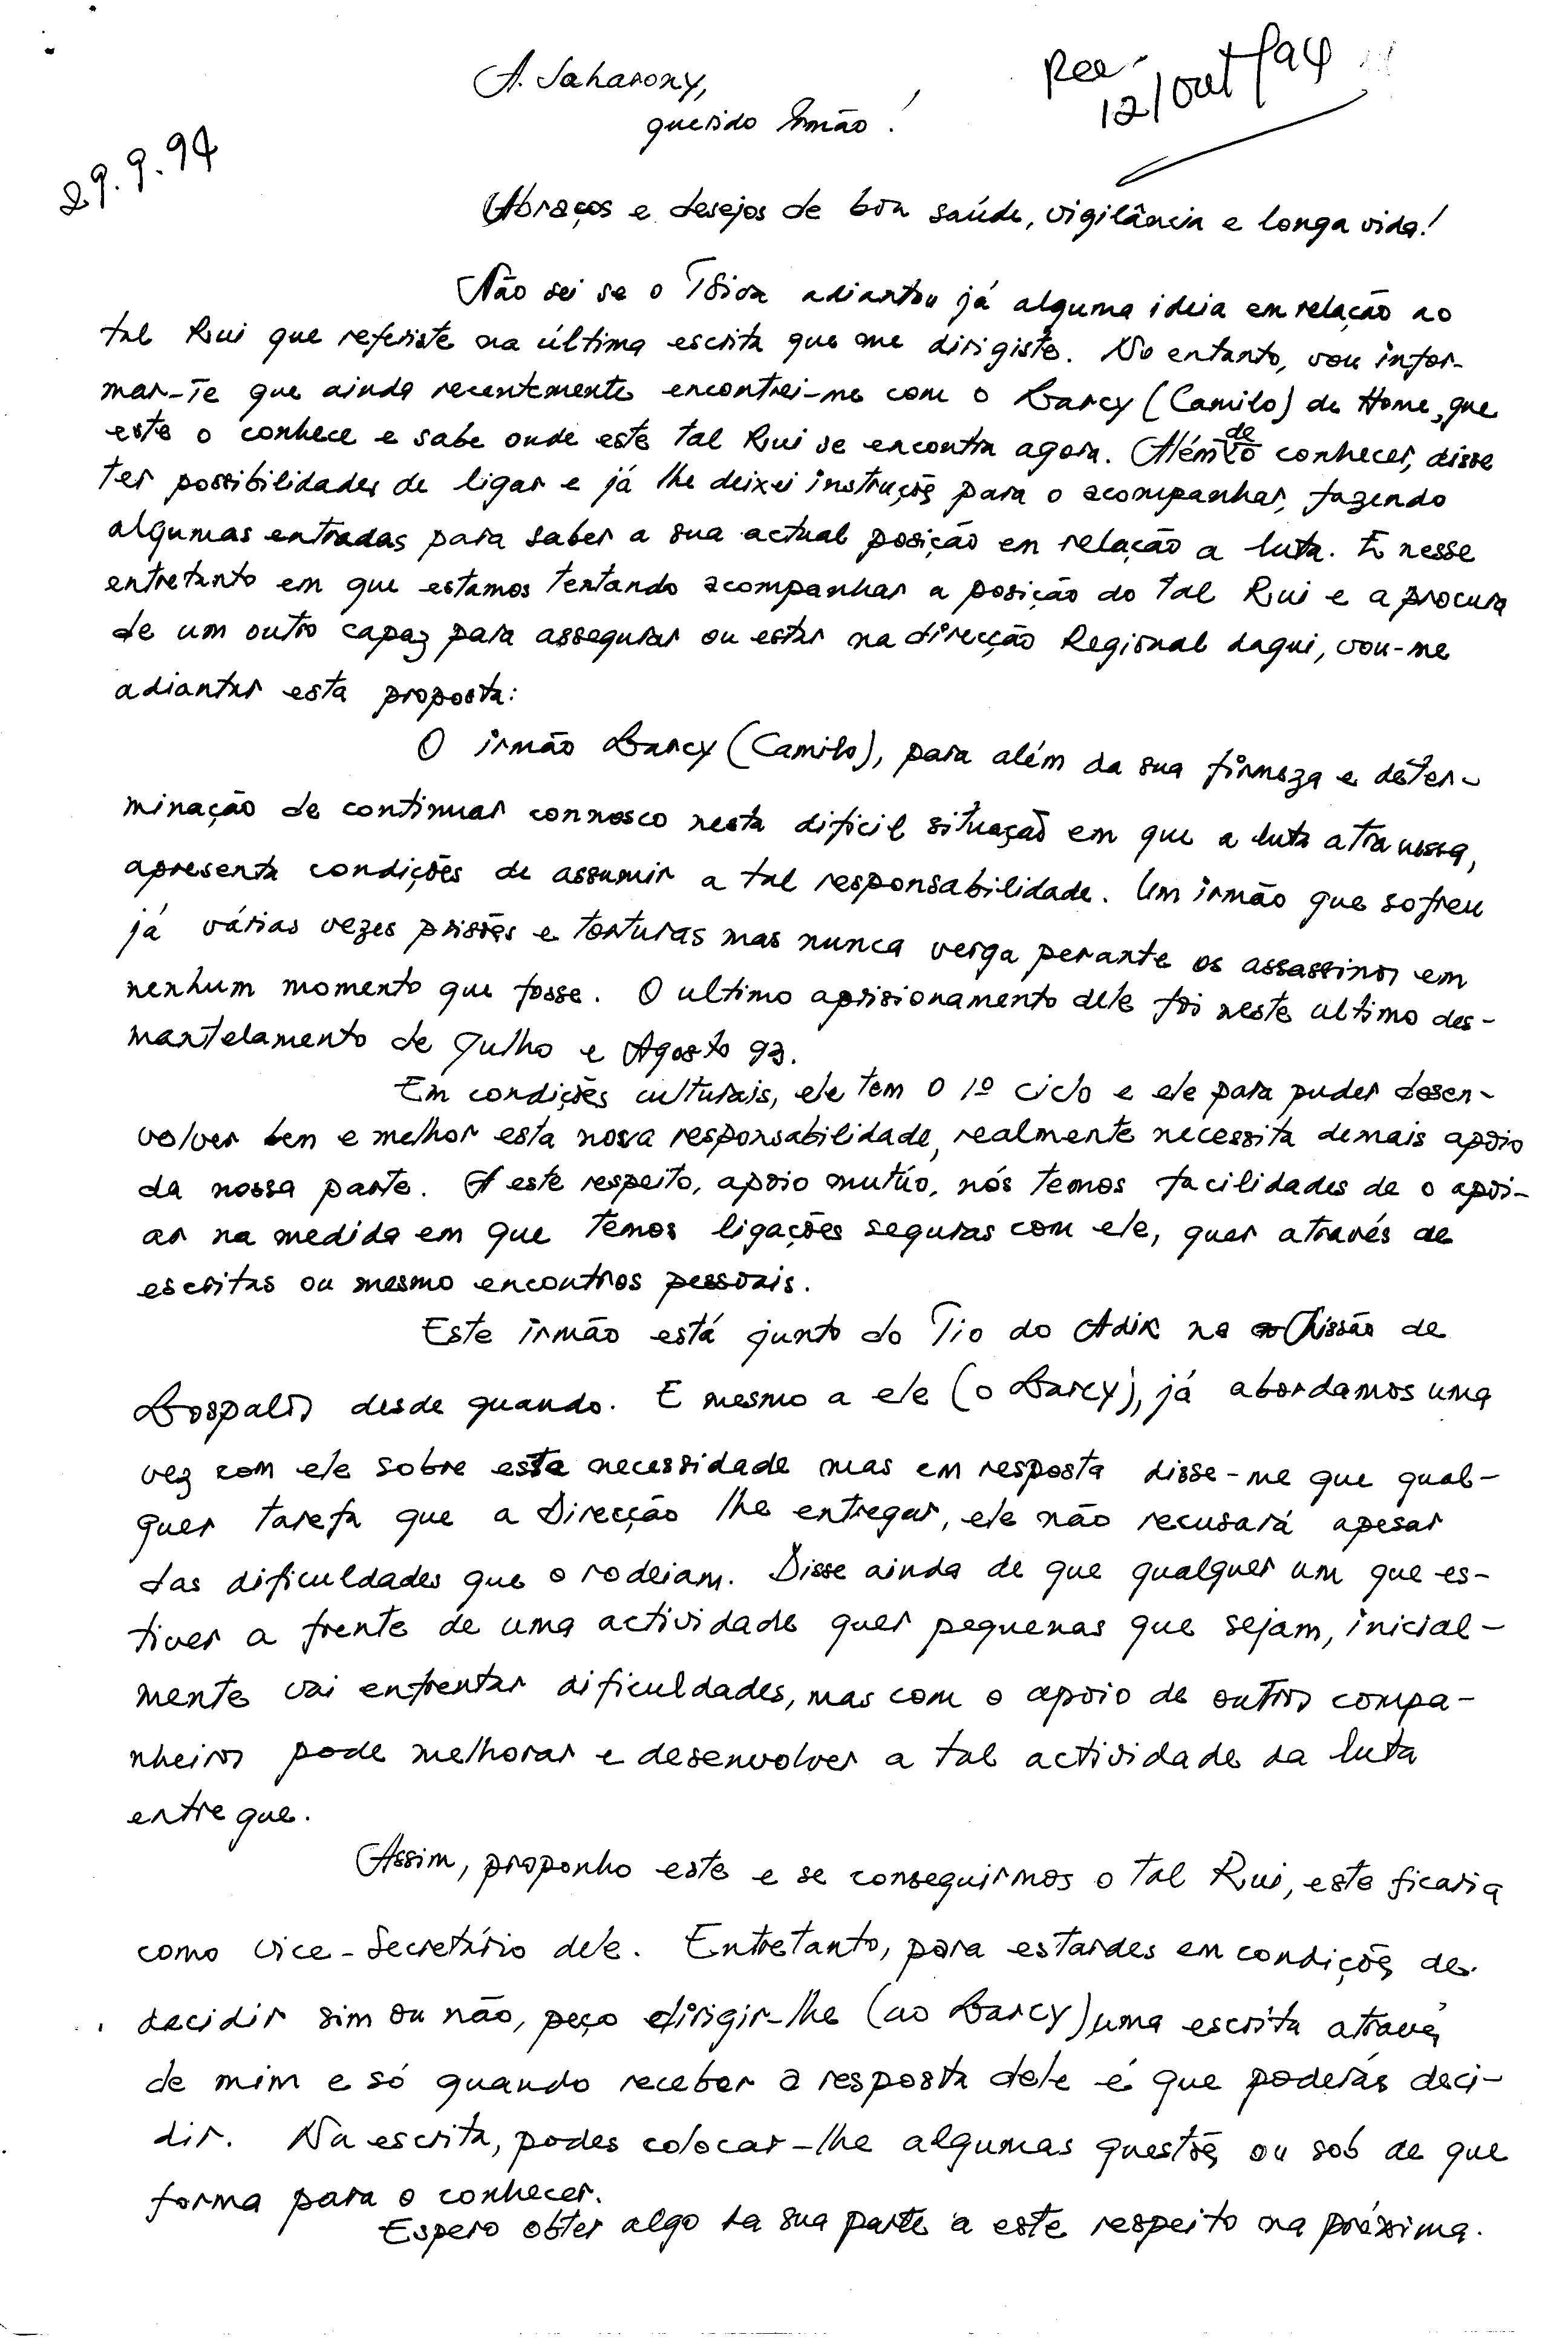 A. Saharony,
querido Irmão!
Rec.
12/out/94
29.9.94
Abraços e desejos de boa saúde, vigilância e longa vida!
Não sei se o adiantou já alguma ideia em relação ao
tal Rui que referiste na última escrita que me dirigiste. No entanto, vou infor-
mar-te que ainda recentemente encontrei-me com o Larcy (Camilo) de Home, que
este o conhece e sabe onde este tal Rui se encontra agora. Além de o conhecer, disse
ter possibilidades de ligar e já lhe deixei instruções para o acompanhar, fazendo
algumas entradas para saber a sua actual posição em relação a luta. E nesse
entretanto em que estamos tentando acompanhar a posição do tal Rui e a procura
de um outro capaz para assegurar ou estar na direcção Regional daqui, vou-me
adiantar esta proposta:
O irmão Larcy (Camilo), para além da sua firmeza e deter-
minação de continuar connosco nesta dificil situação em que a luta atravessa,
apresenta condições de assumir a tal responsabilidade. Um irmão que sofreu
já várias vezes prisões e torturas mas nunca verga perante os assassinos em
nenhum momento que fosse. O ultimo aprisionamento dele foi neste ultimo des-
mantelamento de Julho e Agosto 93.
Em condições culturais, ele tem o 1º ciclo e ele para puder desen-
volver bem e melhor esta nova responsabilidade, realmente necessita demais apoio
da nossa parte. A este respeito, apoio mutúo, nós temos facilidades de o apoi-
ar na medida em que temos ligações seguras com ele, quer através de
escritas ou mesmo encontros pessoais.
Este irmão está junto do Tio do Adik na Missão de
Lospalos desde quando. E mesmo a ele (o Larcy), já abordamos uma
vez com ele sobre esta necessidade mas em resposta disse-me que qual-
quer tarefa que a Direcção lhe entregar, ele não recusará apesar
das dificuldades que o rodeiam. Disse ainda de que qualquer um que es-
tiver a frente de uma actividade quer pequenas que sejam, inicial-
mente vai enfrentar dificuldades, mas com o apoio de outros compa-
nheiros pode melhorar e desenvolver a tal actividade da luta
entregue.
Assim, proponho este e se conseguirmos o tal Rui, este ficaria
como vice-Secretário dele. Entretanto, para estardes em condições de
decidir sim ou não, peço dirigir-lhe (ao Larcy) uma escrita através
de mim e só quando receber a resposta dele é que poderás deci-
dir. Na escrita, podes colocar-lhe algumas questões ou sob de que
forma para o conhecer.
Espero obter algo da sua parte a este respeito na próxima.